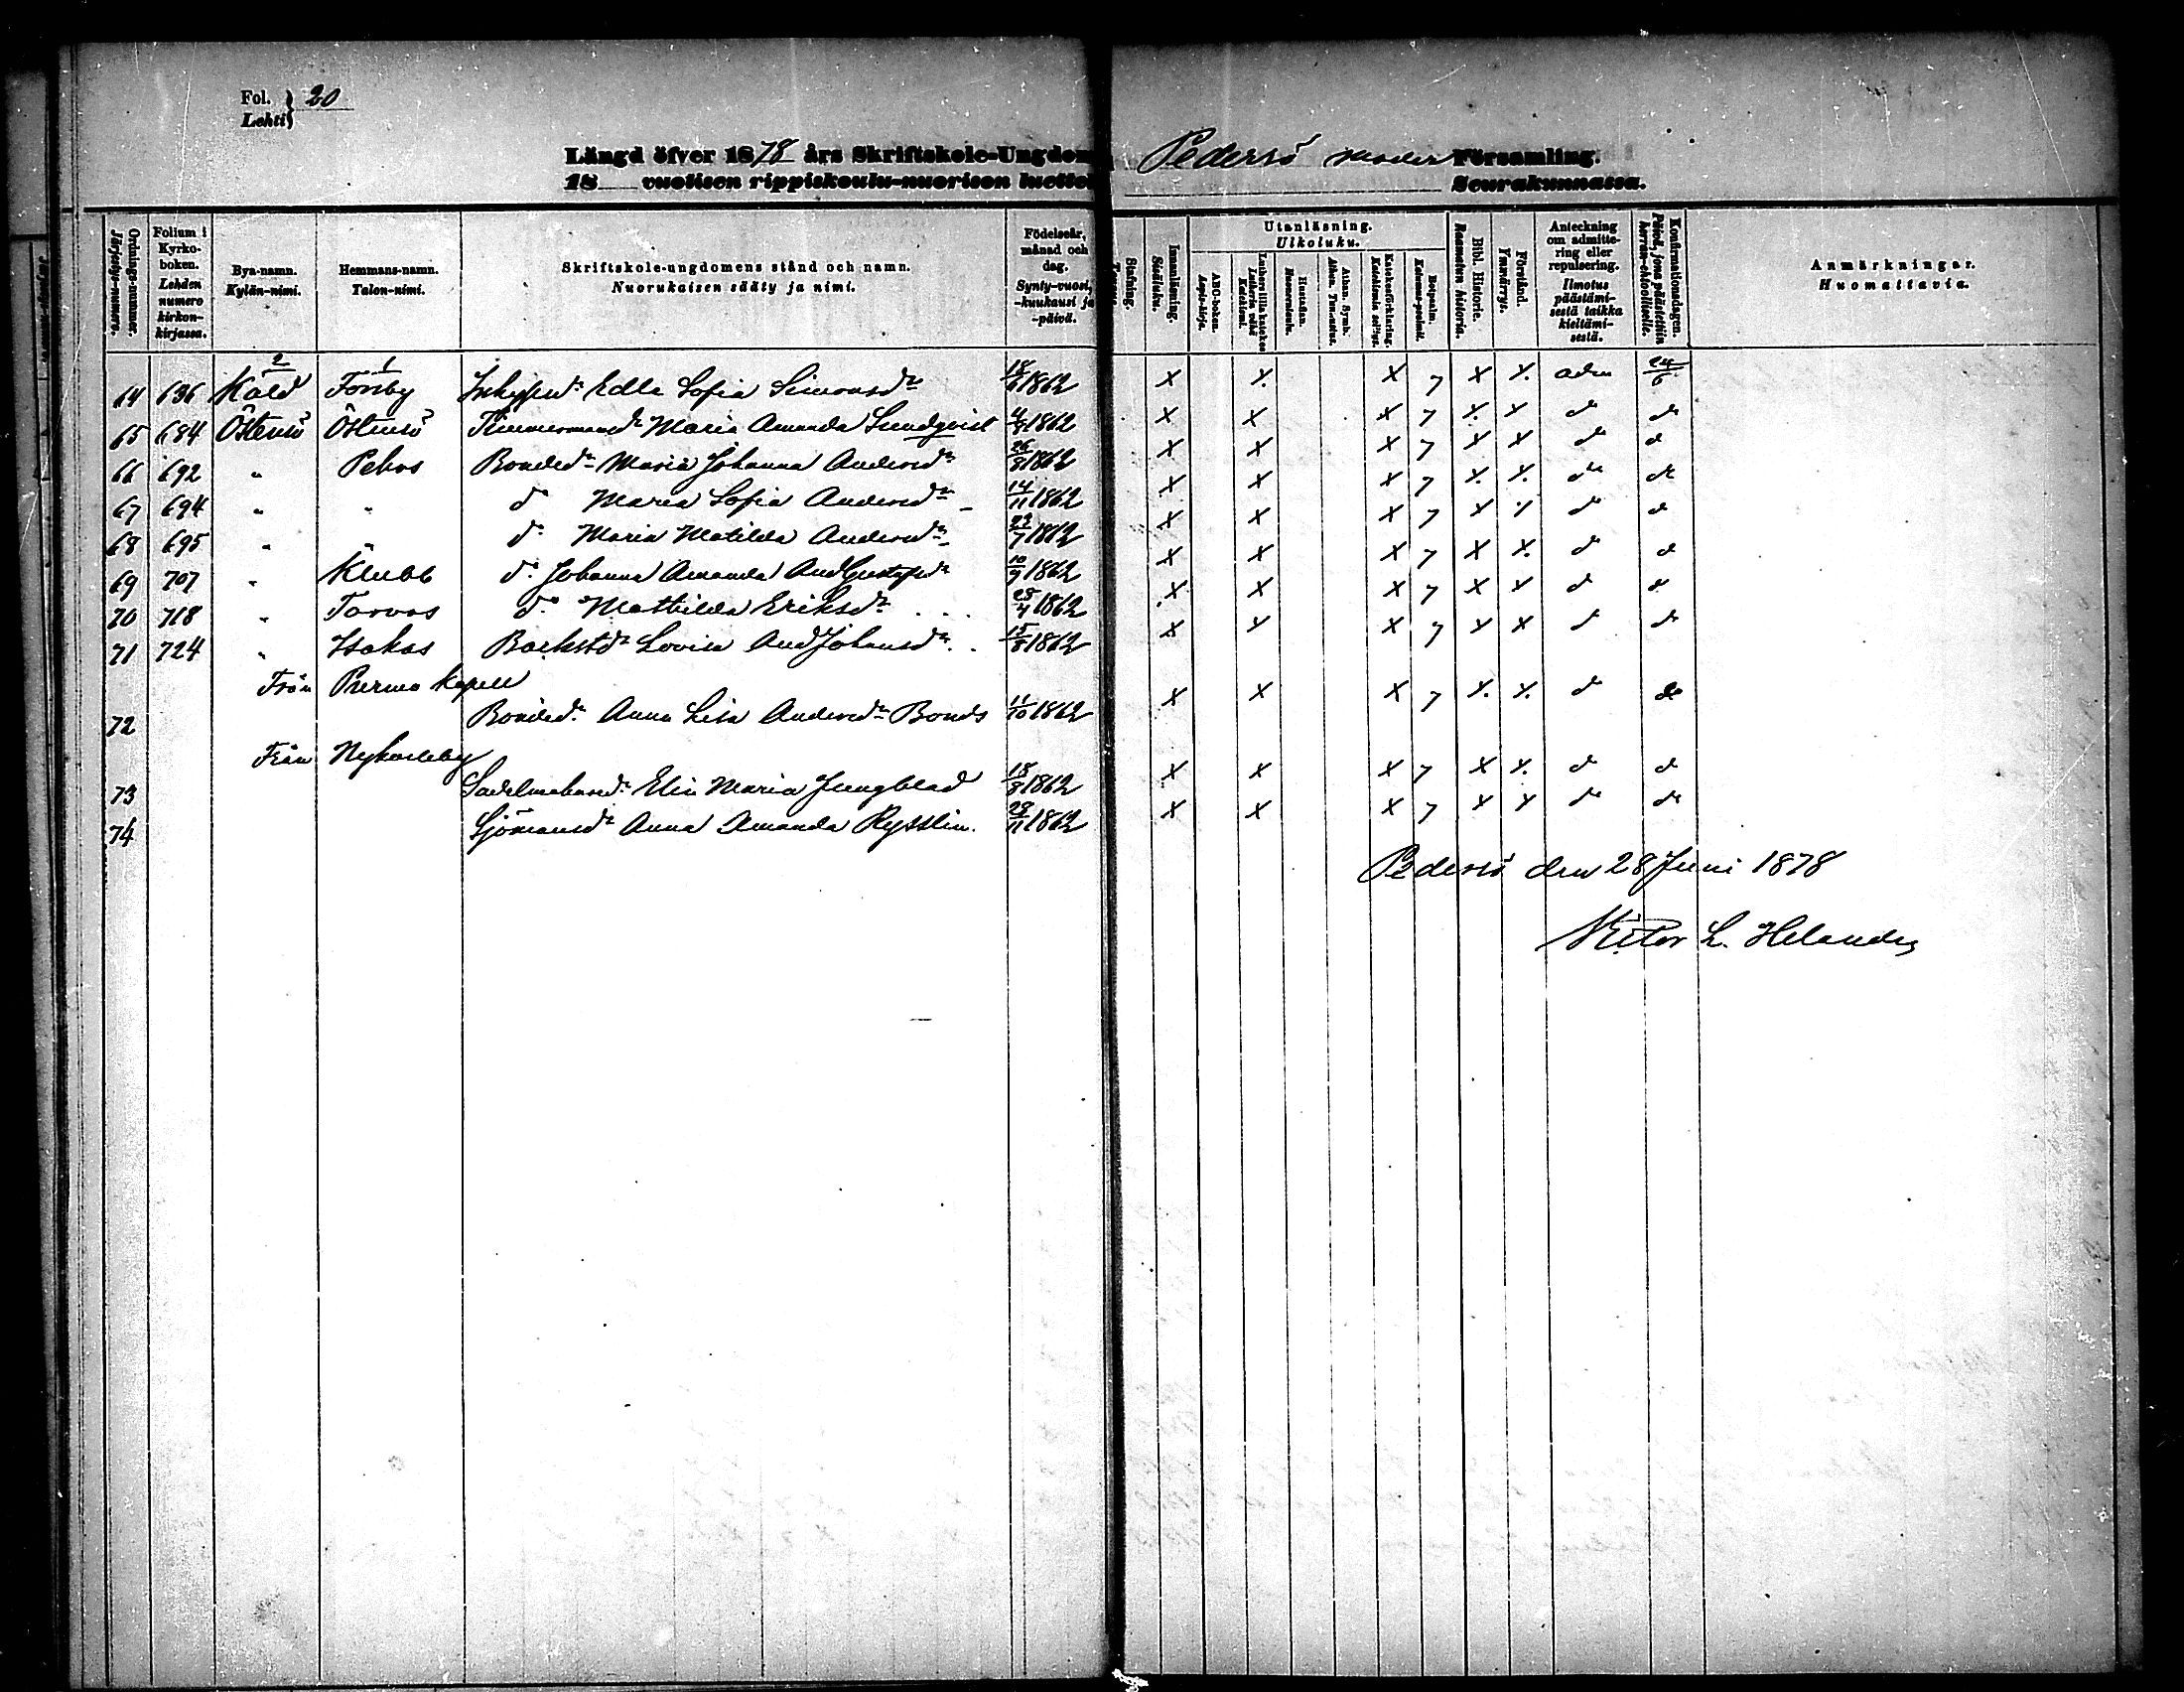 Fol. Lehti } 20
Längd öfver 1878 års Skriftskole-Ungdom Pedersö moder Församling.
18 vuotisen rippiskoulu-nuorison luettelo Seurakunnassa.
Ordnings-nummer. Järjestys-numero.
Folium i Kyrkoboken. Lehden numero kirkonkirjassa.
Bya-namn. Kylän-nimi.
Hemmans-namn. Talon-nimi.
Skriftskole-ungdomens stånd och namn. Nuorukaisen sääty ja nimi.
Födelseår, månad och dag. Synty-vuosi, -kuukausi ja -päivä.
Stafning.
Innanläsning. Sisäluku.
Utanläsning. Ulkoluku.
ABC-boken. Aapis-kirja.
Luthers lilla katekes Lutherin vähä Katekismi.
Hustaflan. Huoneentaulu.
Athan. Symb. Athan. Tunnustus.
Katekesförklaring. Katekismin selitys.
Botpsalm. Katumus-psalmi.
Bibl. Historie. Raamatun historia.
Förstånd. Ymmärrys.
Anteckning om admittering eller repulsering. Ilmotus päästämisestä taikka kieltämisestä.
Konfirmationsdagen. Päivä, jona päästettiin herran-ehtoolliselle.
Anmärkningar. Huomattavia.
2 1
64 696 Kåld Forsby Inhysesd:r Edla Sofia Simonsd:r 18/6 1862 X X. X 7 X X. adm 24/6
65 684 Östensö Östensö Timmermansd:r Maria Amanda Sundqvist 4/9 1862 X X X 7 X. X d:o d:o
66 692 " Pehrs Bonded:r Maria Johanna Andersd:r 26/8 1862 X X X 7 X X d:o d:o
67 694 " " d:o Maria Sofia Andersd:r 14/11 1862 X X X 7 X. X. d:o d:o
68 695 " " d:o Maria Matilda Andersd:r 29/7 1862 X X X 7 X X d:o d:o
69 707 " Klubb d:o Johanna Amanda And Gustafsd:r 10/9 1862 X X X 7 X X. d:o d:o
70 718 " Tarvas d:o Mathilda Eriksd:r 28/4 1862 X X X 7 X X d:o d:o
71 724 " Isakas Backstd:r Lovisa And Johansd:r 15/8 1862 X X X 7 X X d:o d:o
Från Purmo Kapell
72 Bonded:r Anna Lisa Andersd:r Bonds 11/10 1862 X X X 7 X. X. d:o d:o
Från Nykarleby
73 Sadelmakared:r Elin Maria Jungblad 18/8 1862 X X X 7 X X. d:o d:o
74 Sjömansd:r Anna Amanda Rysslin. 28/11 1862 X X X 7 X X d:o d:o
Pedersö den 28 Juni 1878
Victor L. Helander